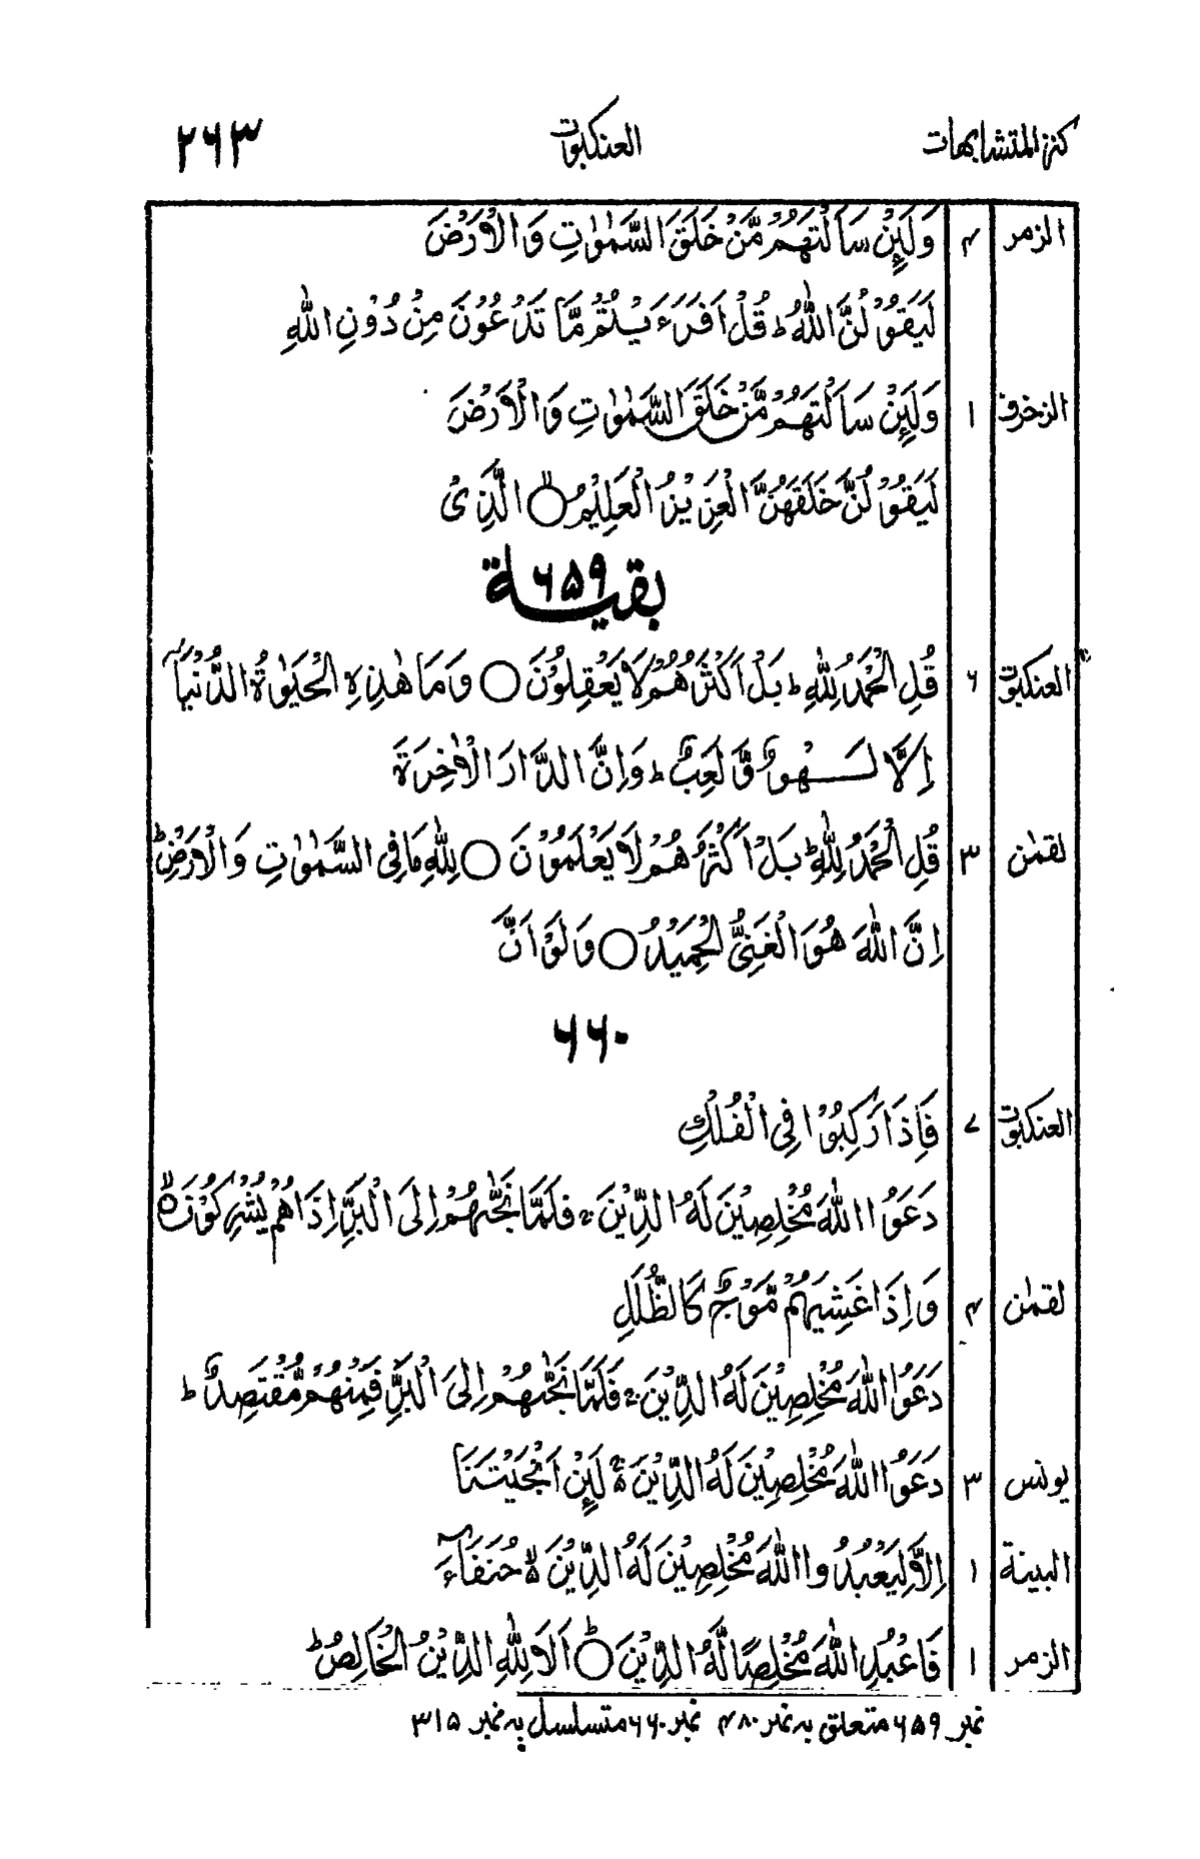 كنز المتشابهات العنكبوت ۲۶۳
الزمر ۴ وَلَئِنْ سَاَلْتَهُمْ مَّنْ خَلَقَ السَّمٰوٰتِ وَالْاَرْضَ
لَيَقُوْلُنَّ اللّٰهُ ؕ قُلْ اَفَرَءَيْتُمْ مَّا تَدْعُوْنَ مِنْ دُوْنِ اللّٰهِ
الزخرف ۱ وَلَئِنْ سَاَلْتَهُمْ مَّنْ خَلَقَ السَّمٰوٰتِ وَالْاَرْضَ
لَيَقُوْلُنَّ خَلَقَهُنَّ الْعَزِيْزُ الْعَلِيْمُ ۙ○ الَّذِىْ
بقية ۶۵۹
العنكبوت ۶ قُلِ الْحَمْدُ لِلّٰهِ ؕ بَلْ اَكْثَرُهُمْ لَا يَعْقِلُوْنَ ○ وَمَا هٰذِهِ الْحَيٰوةُ الدُّنْيَاۤ
اِلَّا لَهْوٌ وَّ لَعِبٌ ؕ وَاِنَّ الدَّارَ الْاٰخِرَةَ
لقمٰن ۳ قُلِ الْحَمْدُ لِلّٰهِ ؕ بَلْ اَكْثَرُهُمْ لَا يَعْلَمُوْنَ ○ لِلّٰهِ مَا فِى السَّمٰوٰتِ وَالْاَرْضِ ؕ
اِنَّ اللّٰهَ هُوَ الْغَنِىُّ الْحَمِيْدُ ○ وَلَوْ اَنَّ
۶۶۰
العنكبوت ۷ فَاِذَا رَكِبُوْا فِى الْفُلْكِ
دَعَوُا اللّٰهَ مُخْلِصِيْنَ لَهُ الدِّيْنَ ۚ فَلَمَّا نَجّٰهُمْ اِلَى الْبَرِّ اِذَا هُمْ يُشْرِكُوْنَ ۙ○
لقمٰن ۴ وَاِذَا غَشِيَهُمْ مَّوْجٌ كَالظُّلَلِ
دَعَوُا اللّٰهَ مُخْلِصِيْنَ لَهُ الدِّيْنَ ۚ فَلَمَّا نَجّٰهُمْ اِلَى الْبَرِّ فَمِنْهُمْ مُّقْتَصِدٌ ؕ
يونس ۳ دَعَوُا اللّٰهَ مُخْلِصِيْنَ لَهُ الدِّيْنَ ۚ لَئِنْ اَنْجَيْتَنَا
البينة ۱ اِلَّا لِيَعْبُدُوا اللّٰهَ مُخْلِصِيْنَ لَهُ الدِّيْنَ ۙ حُنَفَآءَ
الزمر ۱ فَاعْبُدِ اللّٰهَ مُخْلِصًا لَّهُ الدِّيْنَ ؕ○ اَلَا لِلّٰهِ الدِّيْنُ الْخَالِصُ ؕ
نمبر ۶۵۹ متعلق به نمبر ۴۸۰ نمبر ۶۶۰ متسلسل به نمبر ۳۱۵